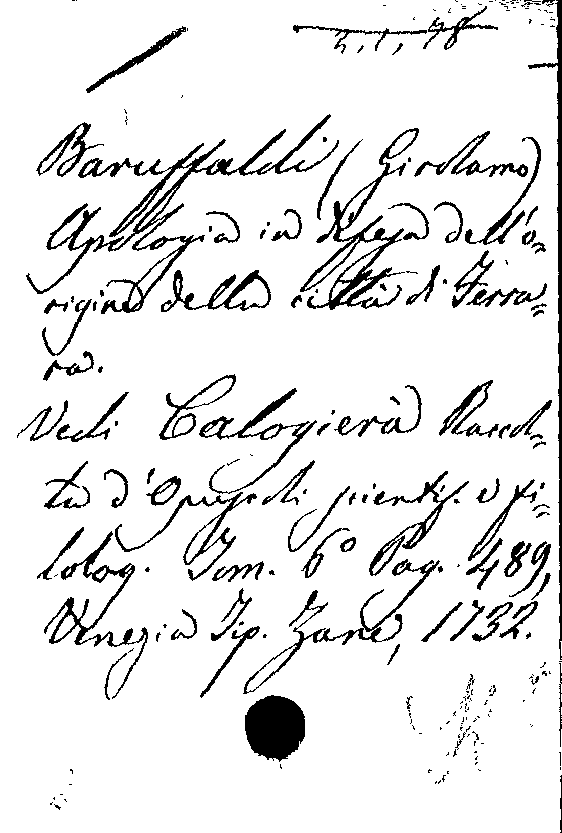 2, 1, 78
Baruffaldi (Girolamo)
Apologia in difesa dell'o=
rigine della città di Ferra=
ra.
Vedi Calogierà Raccol=
ta d'Opuscoli scientif. e fi=
lolog. Tom. 6° Pag. 489,
Venezia Tip. Zane, 1732.